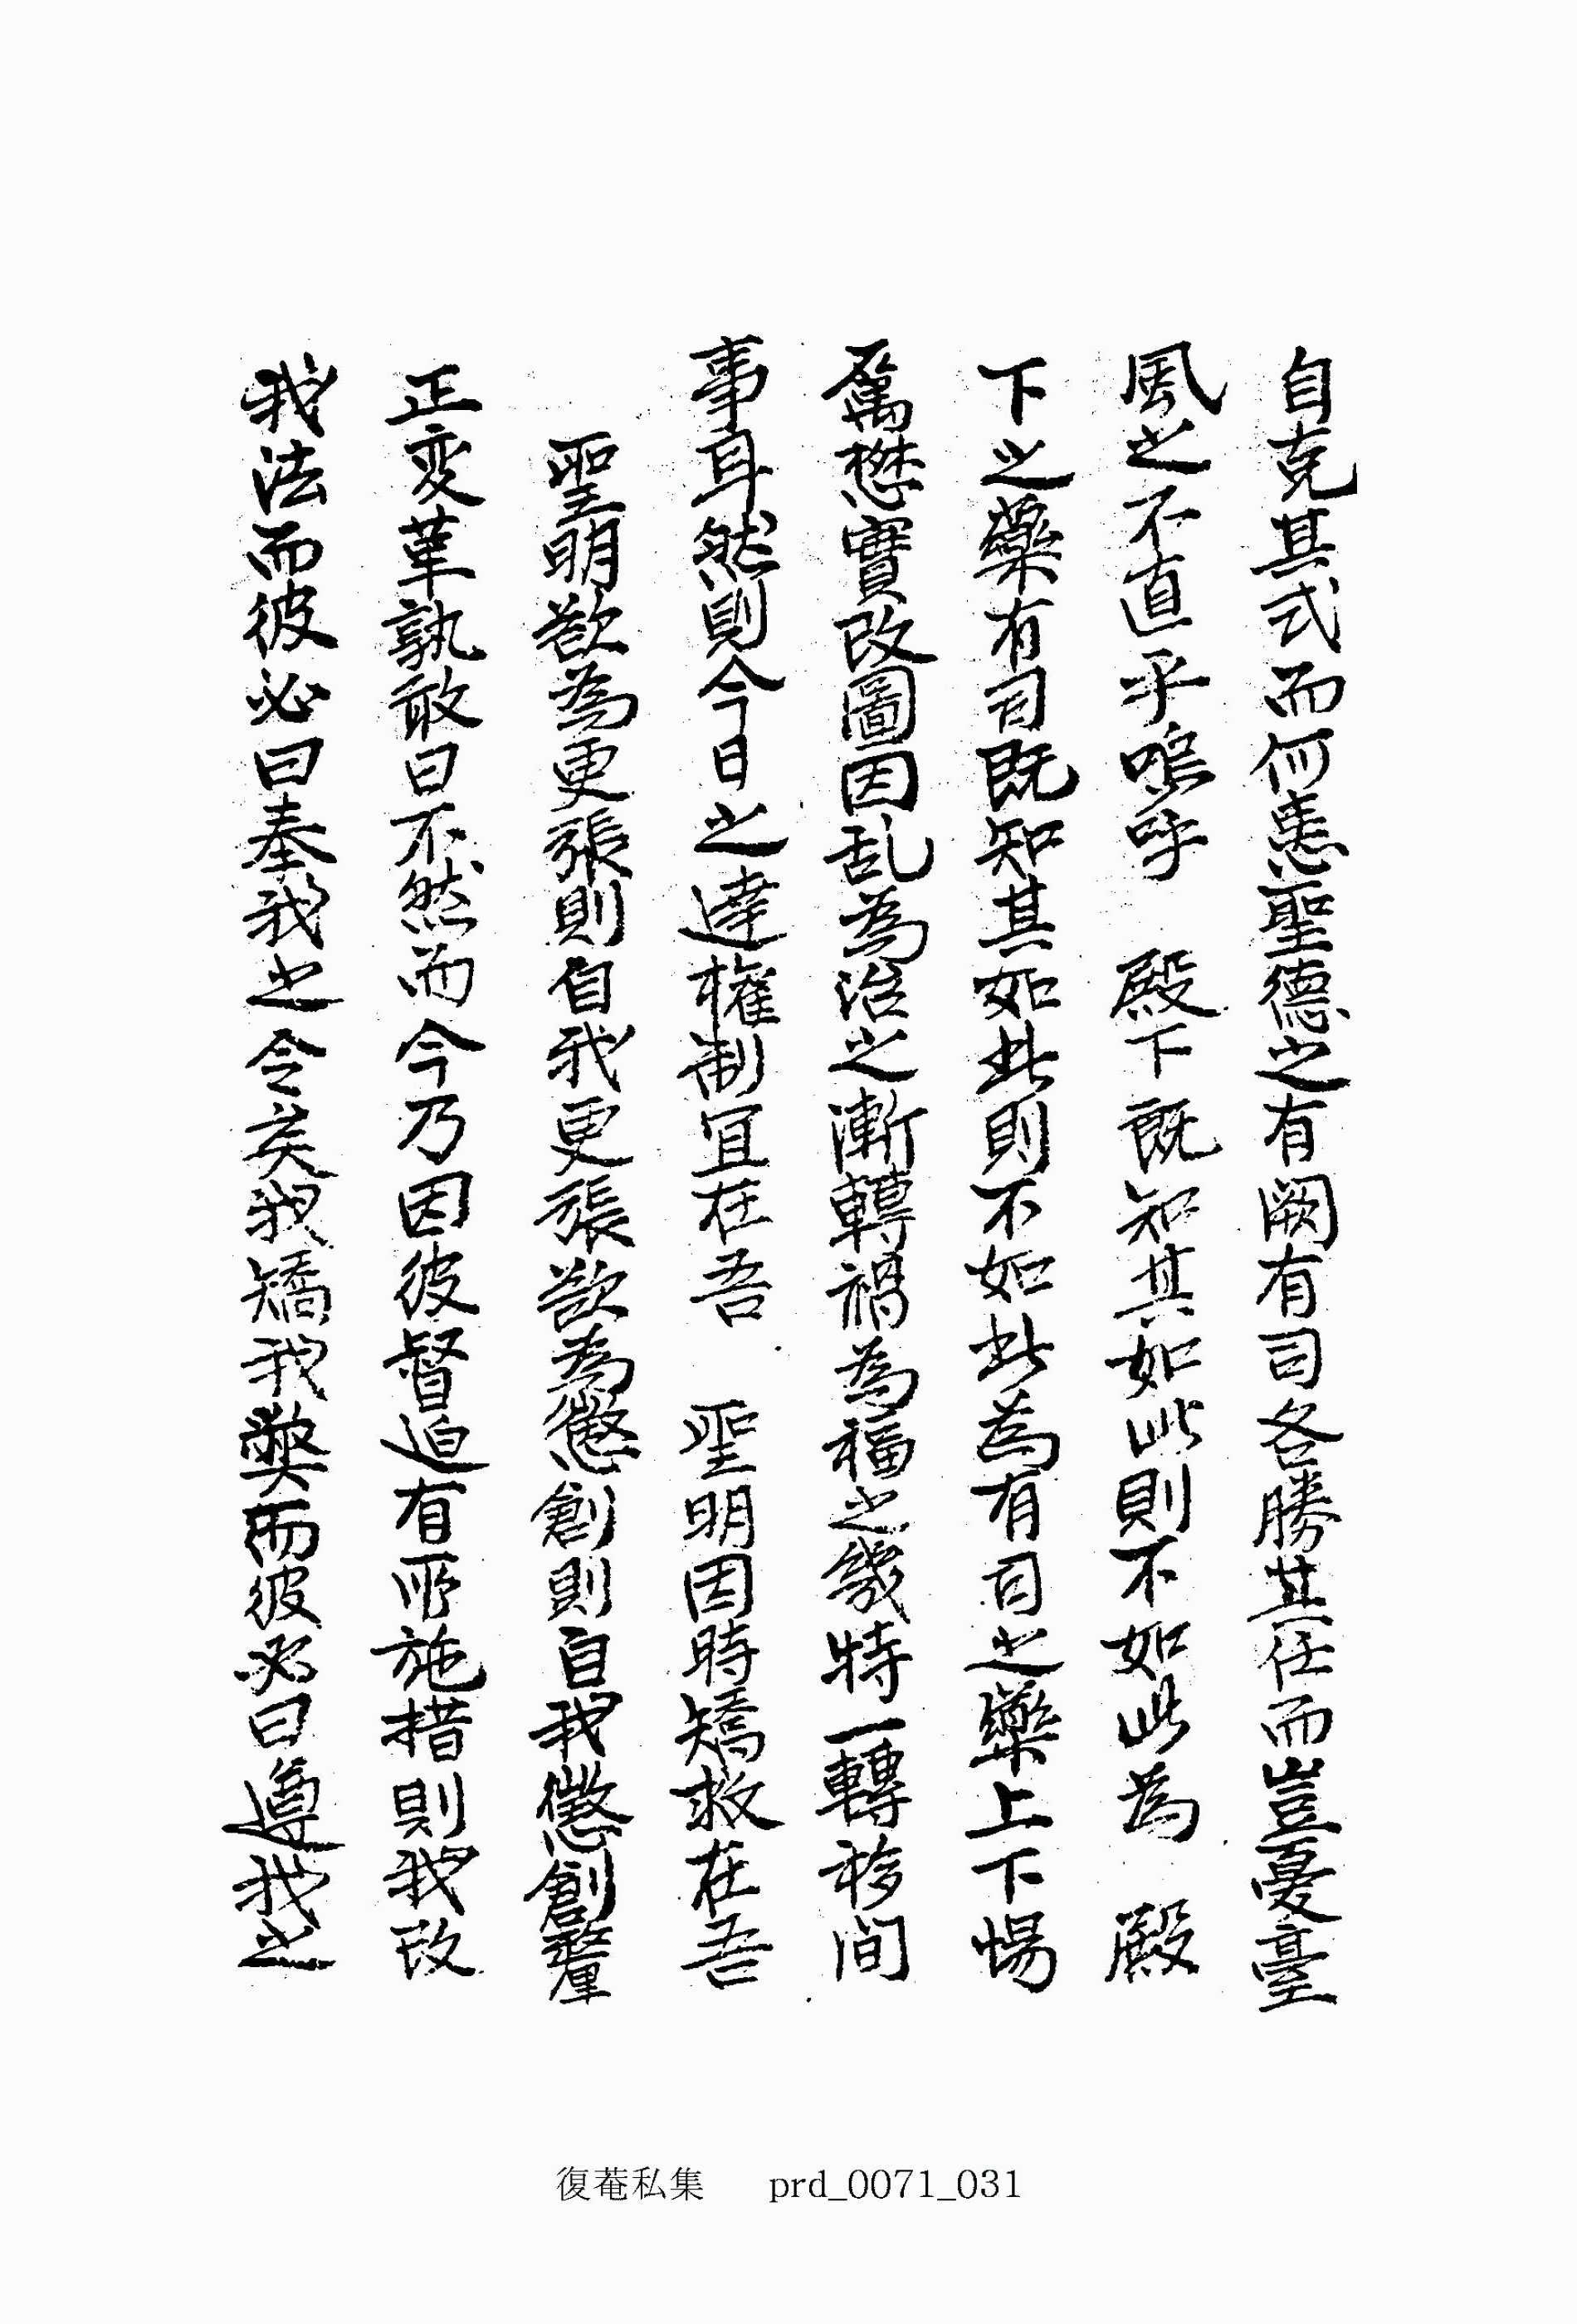 自克其式而何恚聖德之有闕有司各勝其任而豈憂臺
風之不直乎嗚呼 殿下既知其如此則不如此為 殿
下之藥有司既知其如此則不如此為有司之藥上下惕
厲懋實改圖因乱為治之漸轉禍為福之幾特一轉移间
事耳然則今日之達權制宜在吾 聖明因時矯救在吾
聖明欲為更張則自我更張欲為懲創則自我懲創釐
正変革孰敢曰不然而今乃因彼督迫有所施措則我改
我法而彼必曰奉我之令矣我矯我獘而彼必曰遵我之
復菴私集 prd_0071_031